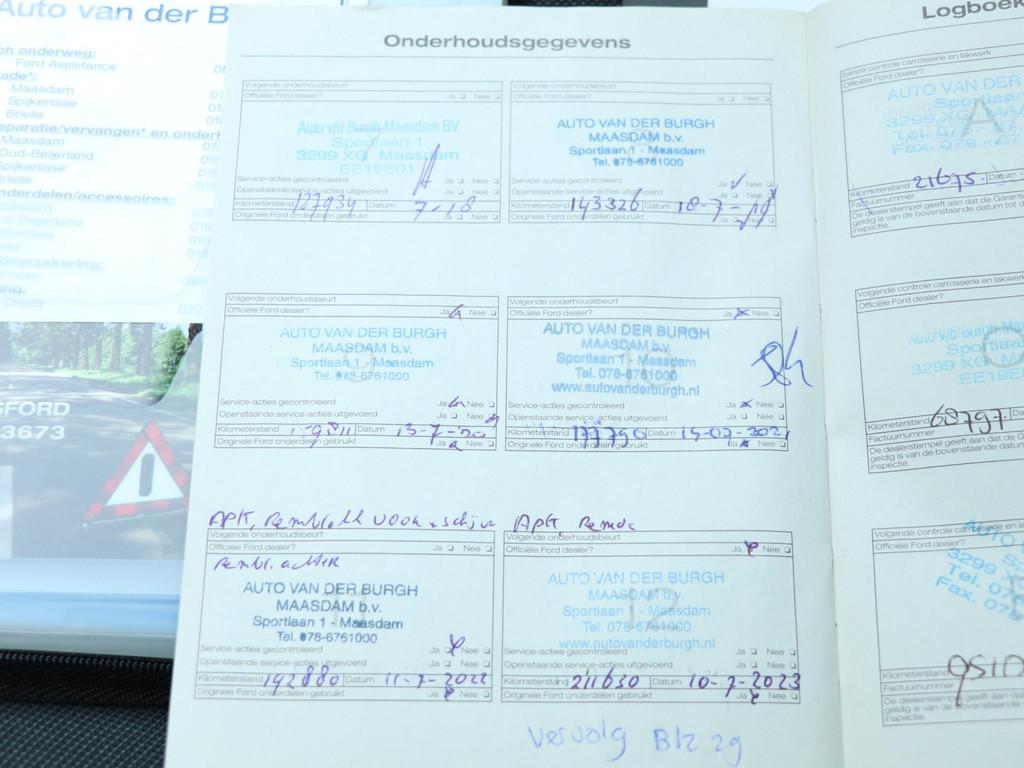 Auto van der B
ch onderweg:
Ford Assistance
ade*:
Maasdam
Spijkenisse
Brielle
eparatie/vervangen* en onderh
Maasdam
Oud-Beijerland
Spijkenisse
Brielle
nderdelen/accessoires:
overzekering:
Credit
SFORD
3673
Onderhoudsgegevens
Volgende onderhoudsbeurt
Officiële Ford dealer? Ja Nee
Auto v/d Burgh-Maasdam BV
Sportlaan 1
3299 XG Maasdam
EE19E01
Service-acties gecontroleerd Ja Nee
Openstaande service-acties uitgevoerd Ja Nee
Kilometerstand 127934 Datum 7-18
Originele Ford onderdelen gebruikt Ja Nee
Volgende onderhoudsbeurt
Officiële Ford dealer? Ja Nee
AUTO VAN DER BURGH
MAASDAM b.v.
Sportlaan 1 - Maasdam
Tel. 078-6761000
Service-acties gecontroleerd Ja Nee
Openstaande service-acties uitgevoerd Ja Nee
Kilometerstand 143326 Datum 18-7-19
Originele Ford onderdelen gebruikt Ja Nee
Volgende onderhoudsbeurt
Officiële Ford dealer? Ja Nee
AUTO VAN DER BURGH
MAASDAM b.v.
Sportlaan 1 - Maasdam
Tel. 078-6761000
Service-acties gecontroleerd Ja Nee
Openstaande service-acties uitgevoerd Ja Nee
Kilometerstand 159811 Datum 13-7-20
Originele Ford onderdelen gebruikt Ja Nee
Volgende onderhoudsbeurt
Officiële Ford dealer? Ja Nee
AUTO VAN DER BURGH
MAASDAM b.v.
Sportlaan 1 - Maasdam
Tel. 078-6761000
www.autovanderburgh.nl
Service-acties gecontroleerd Ja Nee
Openstaande service-acties uitgevoerd Ja Nee
Kilometerstand 177790 Datum 15-07-2021
Originele Ford onderdelen gebruikt Ja Nee
APK, Remblokk voor + schijv
Volgende onderhoudsbeurt
Officiële Ford dealer? Ja Nee
Rembl. achter
AUTO VAN DER BURGH
MAASDAM b.v.
Sportlaan 1 - Maasdam
Tel. 078-6761000
Service-acties gecontroleerd Ja Nee
Openstaande service-acties uitgevoerd Ja Nee
Kilometerstand 192880 Datum 11-7-2022
Originele Ford onderdelen gebruikt Ja Nee
APK
Volgende onderhoudsbeurt
Officiële Ford dealer? Ja Nee
AUTO VAN DER BURGH
MAASDAM b.v.
Sportlaan 1 - Maasdam
Tel. 078-6761000
www.autovanderburgh.nl
Service-acties gecontroleerd Ja Nee
Openstaande service-acties uitgevoerd Ja Nee
Kilometerstand 211630 Datum 10-7-2023
Originele Ford onderdelen gebruikt Ja Nee
Vervolg Blz 29
Logboek
Eerste controle carrosserie en lakwerk
Officiële Ford dealer?
AUTO VAN DER
Sportlaan
3299 XG Maa
Tel. 078
Fax. 078
Kilometerstand 21675 Datum
Factuurnummer
De dealerstempel geeft aan dat de Garant
geldig is van de bovenstaande datum tot d
inspectie.
Volgende controle carrosserie en lakwerk
Officiële Ford dealer?
Auto v/d Burgh-Ma
Sportlaan
3299 XG
EE19E
Kilometerstand 68797 Datum
Factuurnummer
De dealerstempel geeft aan dat de G
geldig is van de bovenstaande datum
inspectie.
Volgende controle carrosserie en lakw
Officiële Ford dealer?
AUTO
3299 X
Tel. 07
Fax. 078
Kilometerstand
Factuurnummer
De dealerstempel geeft aan
geldig is van de bovenstaande
inspectie.